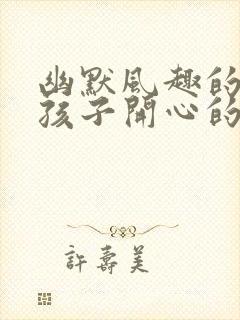 幽默風趣的
孩子開心的
許壽美